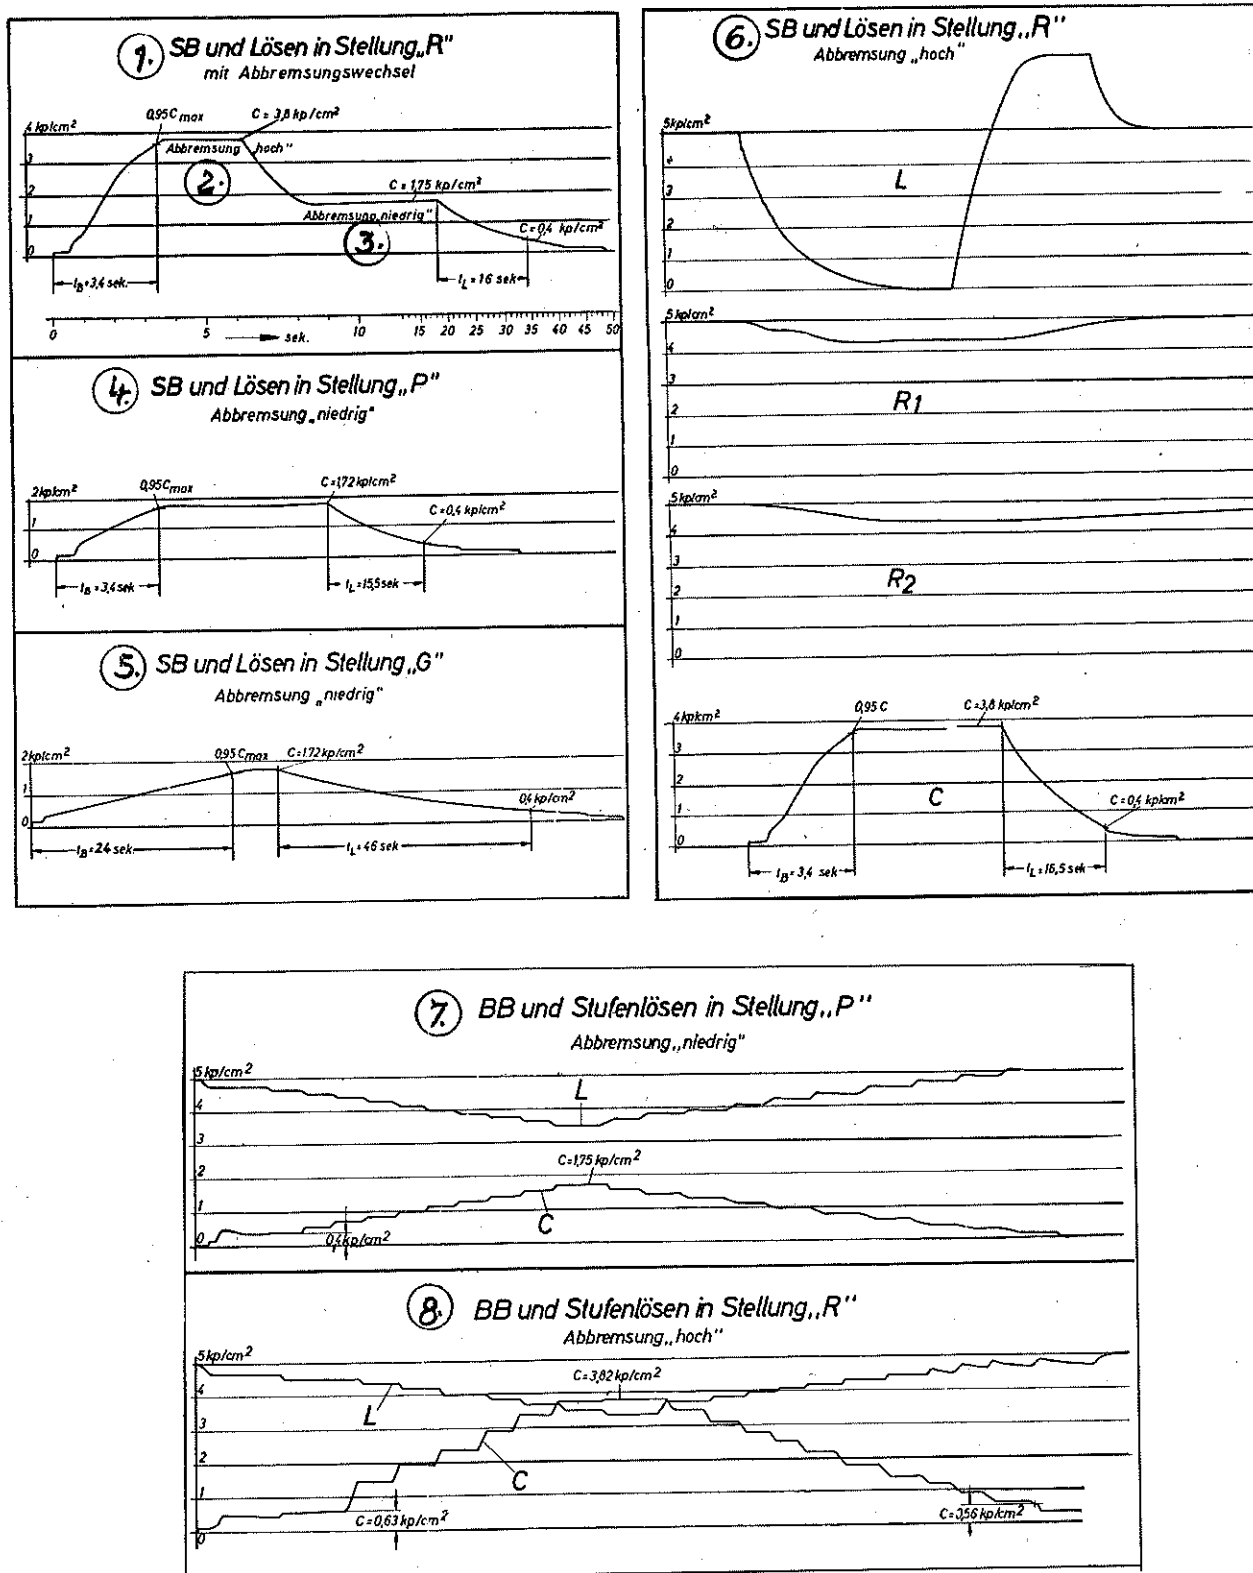 1. SB und Lösen in Stellung„R"
mit Abbremsungswechsel
0,95 C max
C = 3,8 kp/cm²
4 kp/cm²
Abbremsung „hoch"
3
2.
2
C = 1,75 kp/cm²
Abbremsung„niedrig"
1
3.
C = 0,4 kp/cm²
0
tB = 3,4 sek.
tL = 16 sek
0 5 10 15 20 25 30 35 40 45 50
sek.
4. SB und Lösen in Stellung„P"
Abbremsung „niedrig"
2 kp/cm²
0,95 Cmax
C = 1,72 kp/cm²
1
C = 0,4 kp/cm²
0
tB = 3,4 sek
tL = 15,5 sek
5. SB und Lösen in Stellung„G"
Abbremsung „niedrig"
2 kp/cm²
0,95 Cmax
C = 1,72 kp/cm²
1
0,4 kp/cm²
0
tB = 24 sek.
tL = 46 sek
6. SB und Lösen in Stellung„R"
Abbremsung „hoch"
5 kp/cm²
4
L
3
2
1
0
5 kp/cm²
4
3
R1
2
1
0
5 kp/cm²
4
3
R2
2
1
0
4 kp/cm²
0,95 C
C = 3,8 kp/cm²
3
2
C
1
C = 0,4 kp/cm²
0
tB = 3,4 sek
tL = 16,5 sek
7. BB und Stufenlösen in Stellung„P"
Abbremsung„niedrig"
5 kp/cm²
L
4
3
C = 1,75 kp/cm²
2
1
C
0
0,4 kp/cm²
8. BB und Stufenlösen in Stellung„R"
Abbremsung„hoch"
5 kp/cm²
C = 3,82 kp/cm²
4
L
3
2
C
1
C = 0,63 kp/cm²
C = 0,56 kp/cm²
0